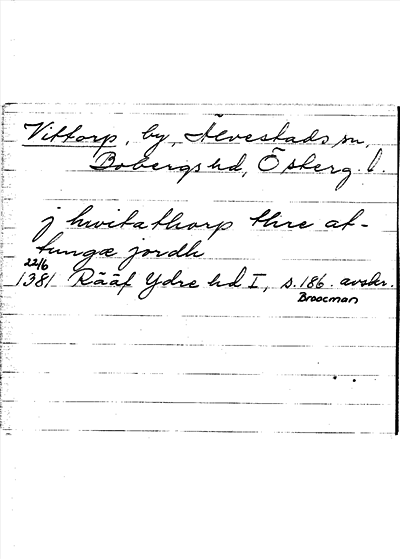 Vittorp, by, Älvestads sn,
Bobergs hd, Österg. l.
j hwitathorp thre at-
tungæ jordh
22/6
1381 Rääf Ydre hd I, s. 186. avskr.
Broocman